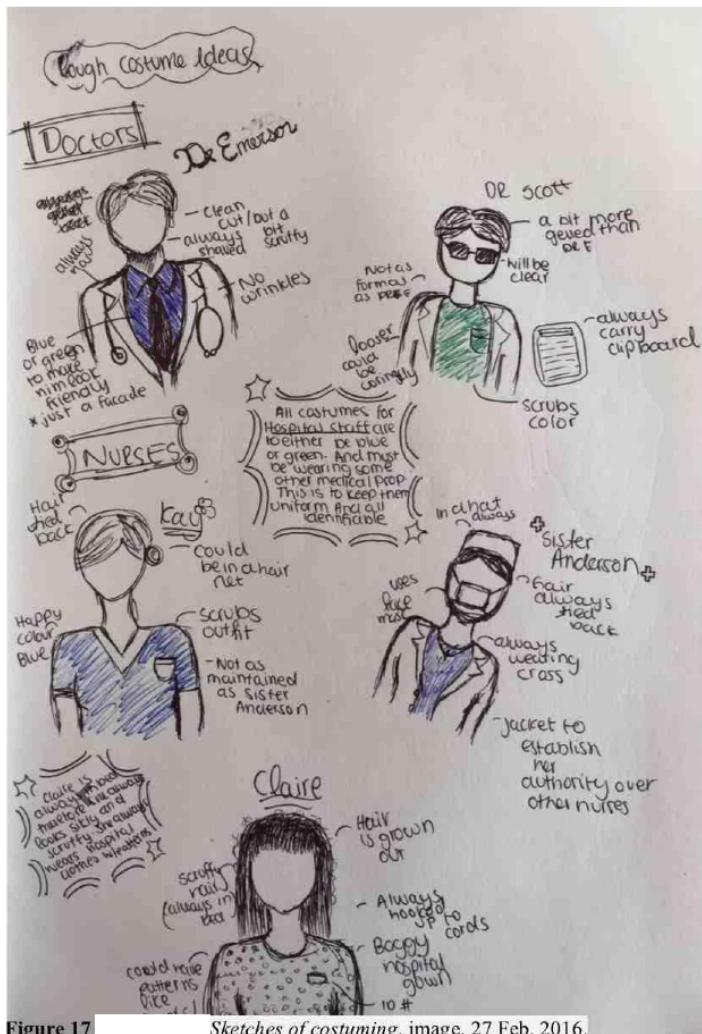 Rough costume Ideas
Doctors
Dr Emerson
clean
cut/but a
bit
scruffy
always
shaved
always
No
wrinkles
Blue
or green
to make
him look
friendly
* just a facade
DR Scott
a bit more
geued than
DR E
Not as
formal
as DR E
will be
clear
looser
could
be
always
carry
clipboard
scrubs
color
All costumes for
Hospital staff are
to either be blue
or green. And must
be wearing some
other medical prop.
This is to keep them
uniform And all
identifiable
NURSES
Kay
Hair
tied
back
could
be in a hair
net
Happy
colour
Blue
scrubs
outfit
-Not as
maintained
as Sister
Anderson
Sister
Anderson
In a hat
always
uses
face
mask
hair
always
tied
back
always
wearing
cross
-Jacket to
establish
her
authority over
other nurses
Claire is
always in bed
therefore
always
looks sickly and
scruffy she always
wears hospital
clothes
Claire
Hair
is grown
out
scruffy
hair
(always in
bed
Always
hooked
up to
cords
Baggy
hospital
gown
ID #
could have
patterns
like
Figure 17
Sketches of costuming, image, 27 Feb. 2016.